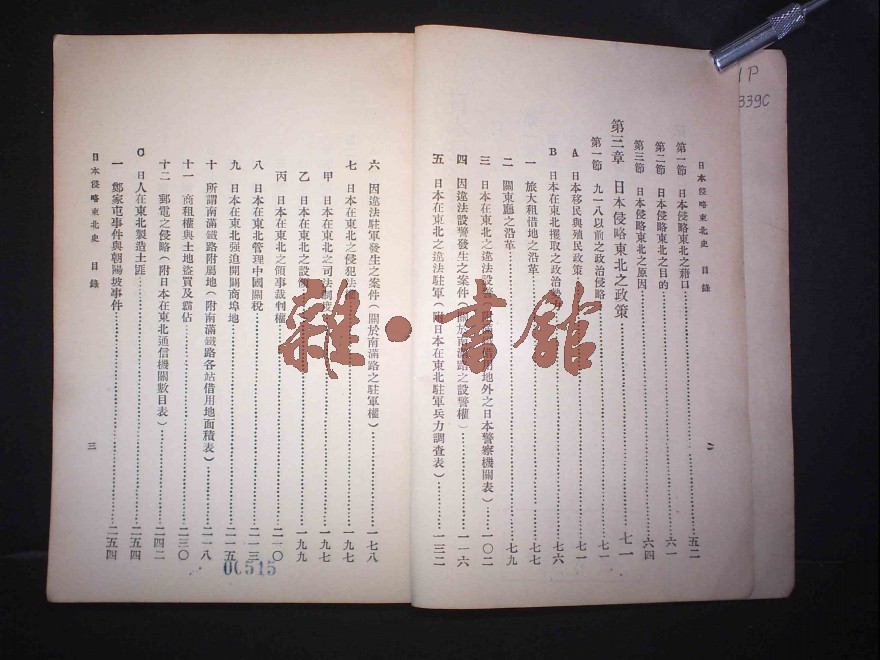 日本侵略東北史 目錄
二
第一節 日本侵略東北之藉口……五二
第二節 日本侵略東北之目的……六一
第三節 日本侵略東北之原因……六四
第三章 日本侵略東北之政策……七一
第一節 九一八以前之政治侵略……七一
A 日本移民與殖民政策……七一
B 日本在東北攫取之政治……七六
一 旅大租借地之沿革……七七
二 關東廳之沿革……七九
三 日本在東北之違法設警(附借用地外之日本警察機關表)……一〇二
四 因違法設警發生之案件(關於南滿路之設警權)……一一六
五 日本在東北之違法駐軍(附日本在東北駐軍兵力調查表)……一三二
六 因違法駐軍發生之案件(關於南滿路之駐軍權)……一七八
七 日本在東北之侵犯法權……一九七
甲 日本在東北之司法制度……一九七
乙 日本在東北之設領……一九九
丙 日本在東北之領事裁判權……二一〇
八 日本在東北管理中國關稅……二一三
九 日本在東北強迫開闢商埠地……二一五
十 所謂南滿鐵路附屬地(附南滿鐵路各站借用地面積表)……二一八
十一 商租權與土地盜買及霸佔……二三〇
十二 郵電之侵略(附日本在東北通信機關數目表)……二四二
C 日人在東北製造土匪……二五四
一 鄭家屯事件與朝陽坡事件……二五四
日本侵略東北史 目錄
三
00515
1P
339C
雜·書館